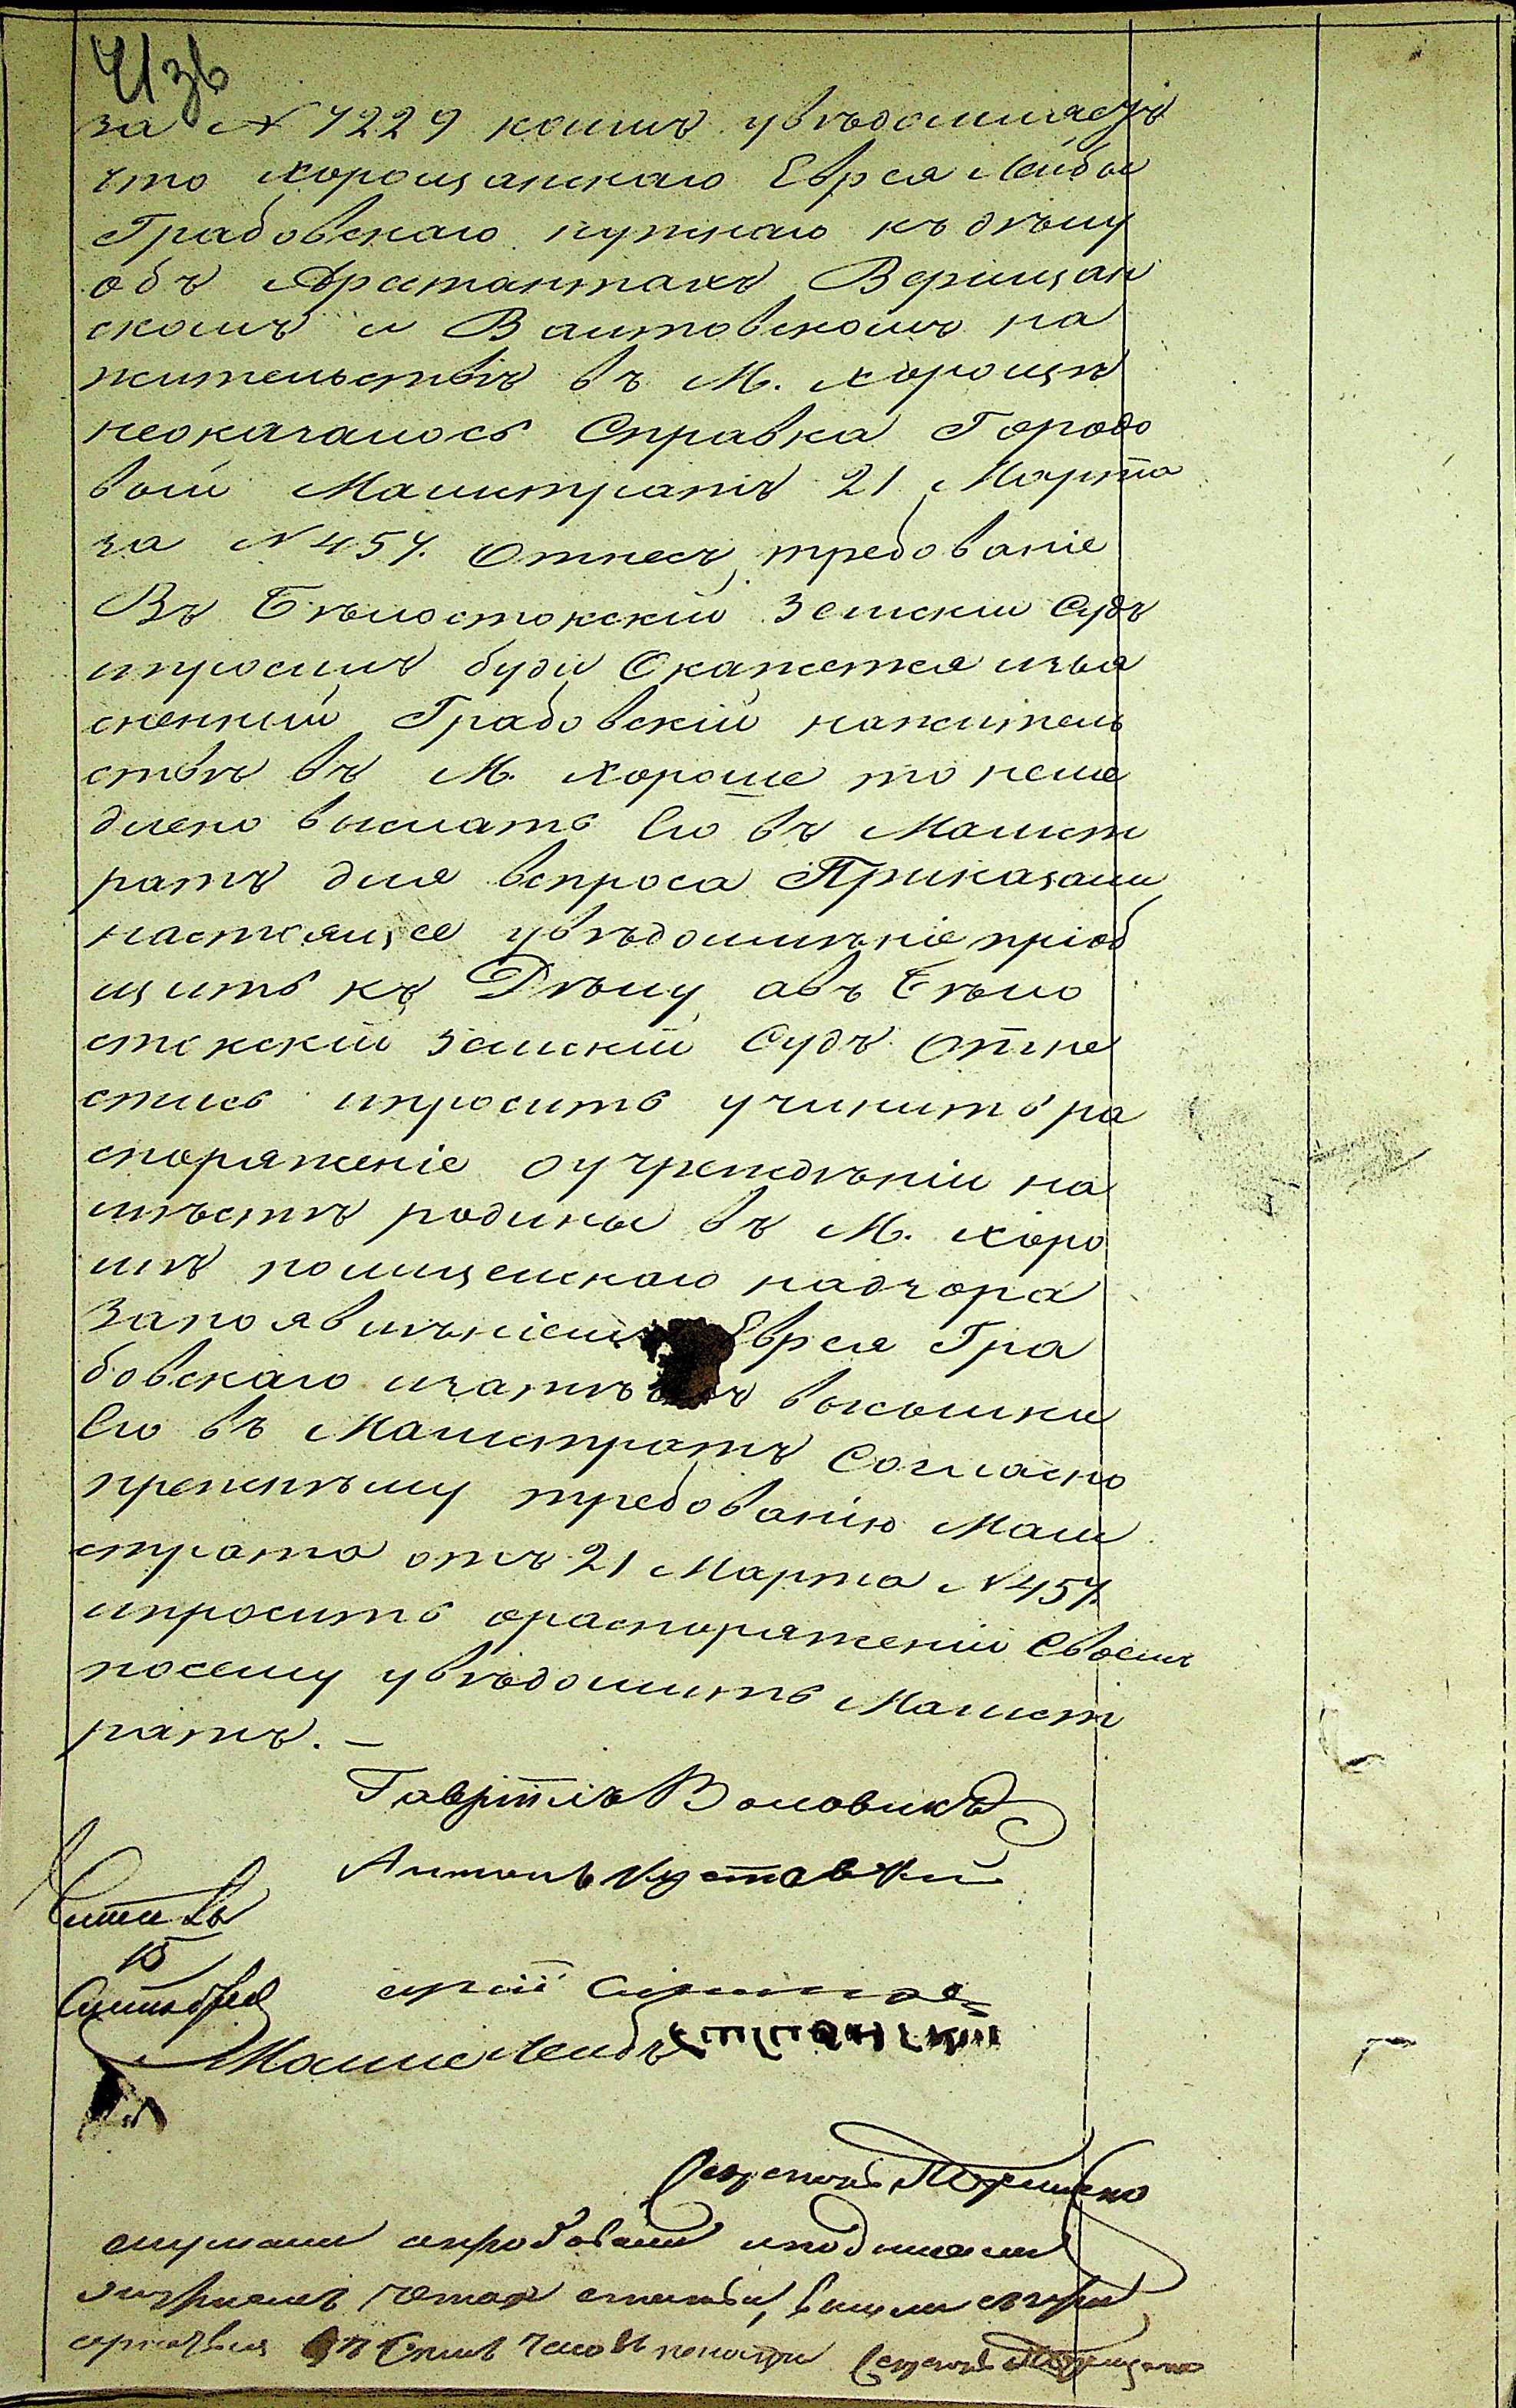 за № 7229 коимъ увѣдомляетъ
что хорощанскаго Еврея Лейбы
Грабовскаго нужнаго къ дѣлу
объ Арестантахъ Верищан
скомъ и Ваитовскомъ на
жительствѣ въ М. хорощѣ
неоказалось Справка Городо
вой Магистратъ 21 Марта
за № 457. Отнесъ требованіе
Въ Бѣлостокскій Земскій Судъ
ипросилъ буди Окажется изъя
сненный Грабовскій нажитель
ствѣ въ М. хороще то неме
длено выслать Его въ Магист
ратъ для вспроса Приказали
настоящее увѣдомленіе пріоб
щить къ Дѣлу авъ Бѣло
стокскій Земскій Судъ Отне
стись ипросить учинить ра
споряженіе оучрежденіи на
мѣстѣ родины въ М. хоро
щѣ полицейскаго надзора
Запоявленіемъ Еврея Гра
бовскаго изатѣмъ высылки
Его въ Магистратъ Согласно
прежнему требованію Маги
страта отъ 21 Марта № 457.
ипросить ораспоряженіи Своемъ
посему увѣдомить Магист
ратъ. —
Гавріилъ Воловикъ
Антонъ
15
Сентября
Секретарь
слушали